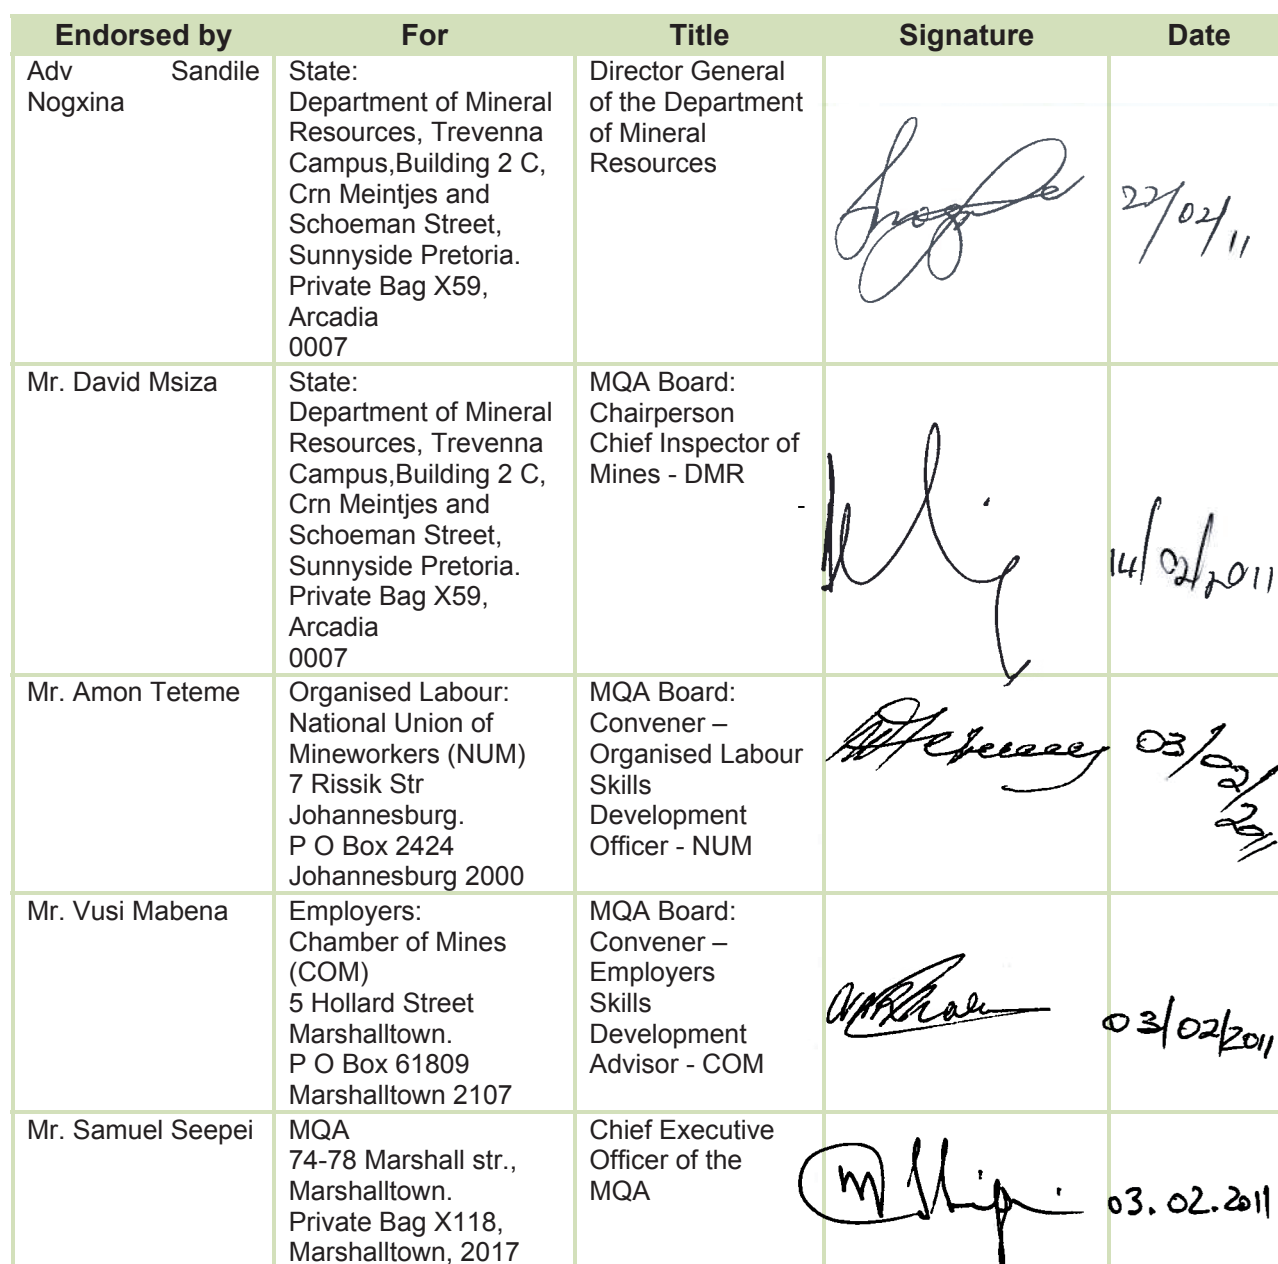 Endorsed by For Title Signature Date
Adv Sandile
Nogxina
State:
Department of Mineral
Resources, Trevenna
Campus,Building 2 C,
Crn Meintjes and
Schoeman Street,
Sunnyside Pretoria.
Private Bag X59,
Arcadia
0007
Director General
of the Department
of Mineral
Resources
22/02/11
Mr. David Msiza
State:
Department of Mineral
Resources, Trevenna
Campus,Building 2 C,
Crn Meintjes and
Schoeman Street,
Sunnyside Pretoria.
Private Bag X59,
Arcadia
0007
MQA Board:
Chairperson
Chief Inspector of
Mines - DMR
-
14/02/2011
Mr. Amon Teteme
Organised Labour:
National Union of
Mineworkers (NUM)
7 Rissik Str
Johannesburg.
P O Box 2424
Johannesburg 2000
MQA Board:
Convener –
Organised Labour
Skills
Development
Officer - NUM
03/02/
2011
Mr. Vusi Mabena
Employers:
Chamber of Mines
(COM)
5 Hollard Street
Marshalltown.
P O Box 61809
Marshalltown 2107
MQA Board:
Convener –
Employers
Skills
Development
Advisor - COM
03/02/2011
Mr. Samuel Seepei
MQA
74-78 Marshall str.,
Marshalltown.
Private Bag X118,
Marshalltown, 2017
Chief Executive
Officer of the
MQA
03.02.2011